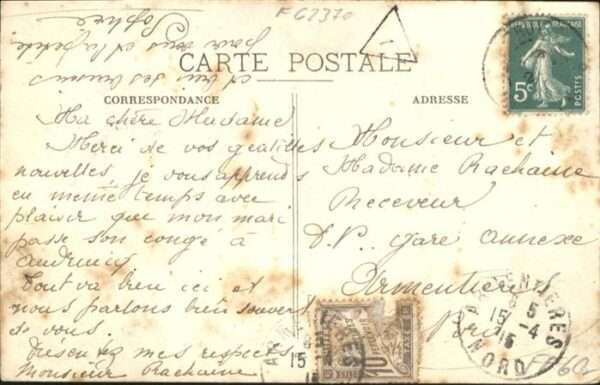 F 62370
Sophie
pour vous et la petite
et bien des baisers
CARTE POSTALE
CORRESPONDANCE
ADRESSE
Ma chère Madame
Merci de vos gentilles
nouvelles, je vous apprends
en meme temps avec
plaisir que mon mari
passe son congé à
Audruicq
Tout va bien ici et
nous parlons bien souvent
de vous.
Présentez mes respects
Monsieur Rachaine
Monsieur et
Madame Rachaine
Receveur
D.P. gare annexe
Armentières
Nord
POSTES
5c
10
ARMENTIERES
15 5
15 -4
NORD
15